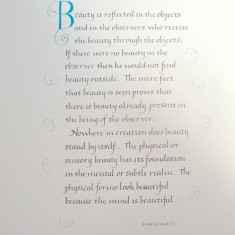 Beauty is reflected in the objects
and in the observers who receive
the beauty through the objects.
If there were no beauty in the
observer then he would not find
beauty outside. The mere fact
that beauty is seen proves that
there is beauty already present in
the being of the observer.
Nowhere in creation does beauty
stand by itself. The physical or
sensory beauty has its foundation
in the mental or subtle realm. The
physical forms look beautiful
because the mind is beautiful.